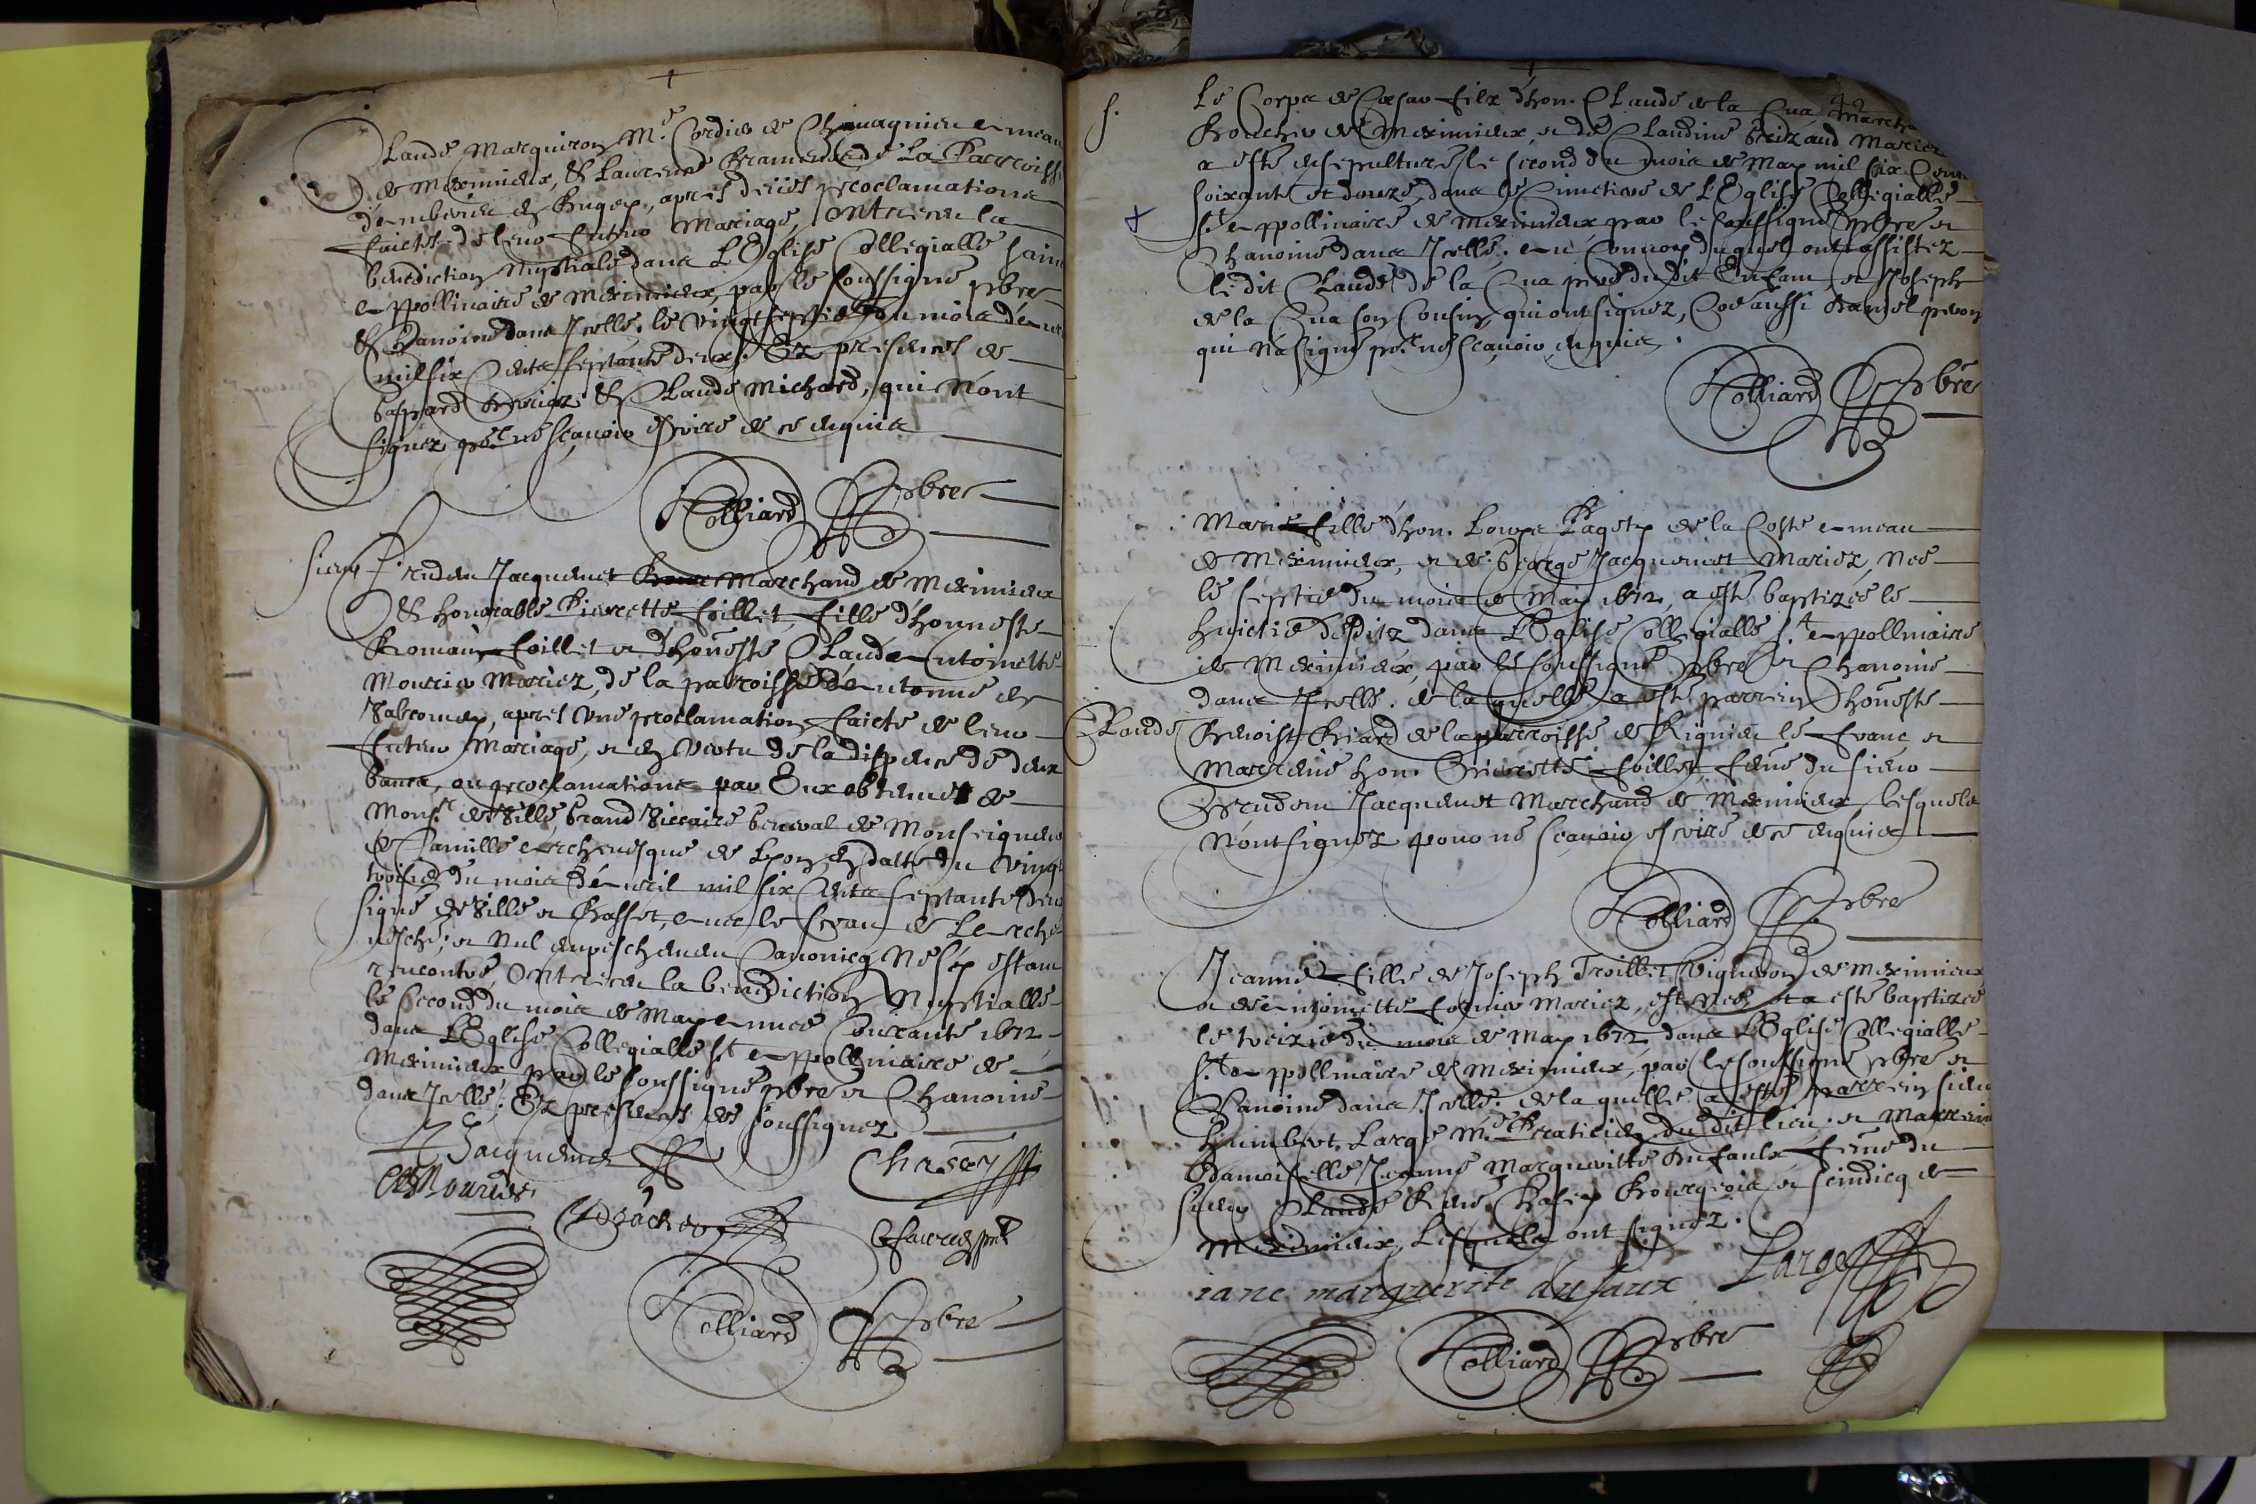 Claude Marquiron Me Cordier de Chavagnieu Ameau
de Meximieux, & Laurence de La Parroisse
d'Amberieu en Bugey, apres deües proclamations
faictes de leur futur Mariage, ont receu la
benediction Nuptiale dans L'Eglise Collegialle saint
Appollinaire de Meximieux, par le soussigné pbre
Chanoine dans Icelle, le vingt septie du mois de
mil six cents septante deux. Es presences de
& Claude Michard, qui n'ont
signez pr ne sçavoir escrire de ce enquis
Folliard pbre
sieur Pruden Jacquemet Marchand de Meximieux
& honorable Pierrette Foillet, fille d'honneste
Romain Foillet et d'honeste Claude Antoinette
Mourier Mariez, de la parroisse
apres Une proclamation faicte de leur
futur Mariage, et en Vertu de la dispence de deux
bancs, ou proclamations par Eux obtenues de
Monsr de Ville Grand Viccaire General de Monseigneur
de Camille Archevesque de Lyon en datte du vingt
troisie du mois d'Avril mil six Cents septante deux
signé de Ville et Basset, Avec le sceau de L'Arche
vesché, et Nul empeschement Canonicq Ne s'y estant
rencontré, Ont receu la benediction Nuptialle
le second du mois de May Annee Courante 1672
dans L'Eglise Collegialle st Appollinaire de
Meximieux par le soussigné pbre et Chanoine
dans Icelle. Es presences des soussignez
Jacquemet
Mourier
Folliard pbre
42
Le Corps de Cesar filz d'hon. Claude de la Cua March
Boucher de Meximieux, et de Claudine Mariez
a esté ensepulturé le second du mois de May mil six Cent
soixante et douze, dans le Cimetiere de L'Eglise Collegialle
st Appollinaire de Meximieux par le soussigné pbre et
Chanoine dans Icelle, au Convoy duquel ont assistez
le dit Claude de la Cua pere du dit Enfant, et Joseph
de la Cua son Cousin, qui ont signez,
qui n'a signé pr ne sçavoir enquis.
Folliard pbre
Marie fille d'hon. Louys Pagety de la Coste Ameau
de Meximieux, et de George Jacquemet Mariez, Nee
le septie du mois de May 1672, a esté baptizee le
huictie dans L'Eglise Collegialle st Appollinaire
de Meximieux, par le soussigné Pbre et Chanoine
dans Icelle. de laquelle a esté parrein honeste
Claude Benoist Briard de la parroisse de Rignieu le franc et
Marreine hon. Pierrette Foillet, feme du sieur
Pruden Jacquemet Marchand de Meximieux lesquels
N'ont signez pour ne sçavoir escrire de ce enquis
Folliard pbre
Jeanne fille de Joseph Troillet Vigneron de Meximieux
et d'Antoinette Mariez, est Nee et a esté baptizee
le treizie du mois de May 1672 dans L'Eglise Collegialle
st Appollinaire de Meximieux, par le soussigné pbre et
Chanoine dans Icelle. de laquelle a esté parrein sieur
Humbert Large Me Praticien du dit lieu, et Marreine
Damoiselle Jeanne Marguerite Dufaulx feme du
sieur Claude René Bourgeois et scindicq de
Meximieux, Lesquels ont signez.
iane marguerite dufaux Large
Folliard pbre